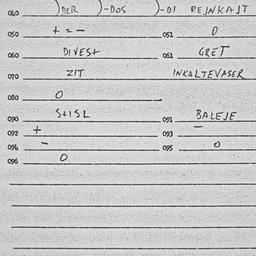 040 )DER )-DOS )-DI REJNKAJT
050 + = - 051 0
060 DIVEST 061 GRET
070 ZIT INKALTEVASER
080 0
090 S+ISL 091 BALEJE
092 + 093 -
094 - 095 0
096 0